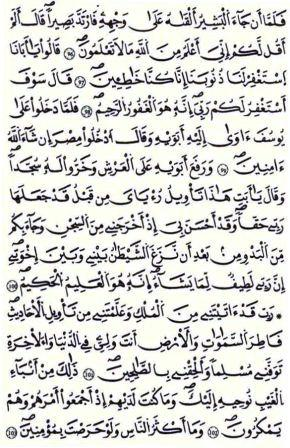 فَلَمَّا أَن جَآءَ ٱلْبَشِيرُ أَلْقَىٰهُ عَلَىٰ وَجْهِهِۦ فَٱرْتَدَّ بَصِيرًا ۖ قَالَ أَلَمْ
أَقُل لَّكُمْ إِنِّىٓ أَعْلَمُ مِنَ ٱللَّهِ مَا لَا تَعْلَمُونَ ٩٦ قَالُوا۟ يَٰٓأَبَانَا
ٱسْتَغْفِرْ لَنَا ذُنُوبَنَآ إِنَّا كُنَّا خَٰطِـِٔينَ ٩٧ قَالَ سَوْفَ
أَسْتَغْفِرُ لَكُمْ رَبِّىٓ ۖ إِنَّهُۥ هُوَ ٱلْغَفُورُ ٱلرَّحِيمُ ٩٨ فَلَمَّا دَخَلُوا۟ عَلَىٰ
يُوسُفَ ءَاوَىٰٓ إِلَيْهِ أَبَوَيْهِ وَقَالَ ٱدْخُلُوا۟ مِصْرَ إِن شَآءَ ٱللَّهُ
ءَامِنِينَ ٩٩ وَرَفَعَ أَبَوَيْهِ عَلَى ٱلْعَرْشِ وَخَرُّوا۟ لَهُۥ سُجَّدًا ۖ
وَقَالَ يَٰٓأَبَتِ هَٰذَا تَأْوِيلُ رُءْيَٰىَ مِن قَبْلُ قَدْ جَعَلَهَا
رَبِّى حَقًّا ۖ وَقَدْ أَحْسَنَ بِىٓ إِذْ أَخْرَجَنِى مِنَ ٱلسِّجْنِ وَجَآءَ بِكُم
مِّنَ ٱلْبَدْوِ مِنۢ بَعْدِ أَن نَّزَغَ ٱلشَّيْطَٰنُ بَيْنِى وَبَيْنَ إِخْوَتِىٓ ۚ
إِنَّ رَبِّى لَطِيفٌ لِّمَا يَشَآءُ ۚ إِنَّهُۥ هُوَ ٱلْعَلِيمُ ٱلْحَكِيمُ ١٠٠
۞ رَبِّ قَدْ ءَاتَيْتَنِى مِنَ ٱلْمُلْكِ وَعَلَّمْتَنِى مِن تَأْوِيلِ ٱلْأَحَادِيثِ ۚ
فَاطِرَ ٱلسَّمَٰوَٰتِ وَٱلْأَرْضِ أَنتَ وَلِىِّۦ فِى ٱلدُّنْيَا وَٱلْءَاخِرَةِ ۖ
تَوَفَّنِى مُسْلِمًا وَأَلْحِقْنِى بِٱلصَّٰلِحِينَ ١٠١ ذَٰلِكَ مِنْ أَنۢبَآءِ
ٱلْغَيْبِ نُوحِيهِ إِلَيْكَ ۖ وَمَا كُنتَ لَدَيْهِمْ إِذْ أَجْمَعُوٓا۟ أَمْرَهُمْ وَهُمْ
يَمْكُرُونَ ١٠٢ وَمَآ أَكْثَرُ ٱلنَّاسِ وَلَوْ حَرَصْتَ بِمُؤْمِنِينَ ١٠٣